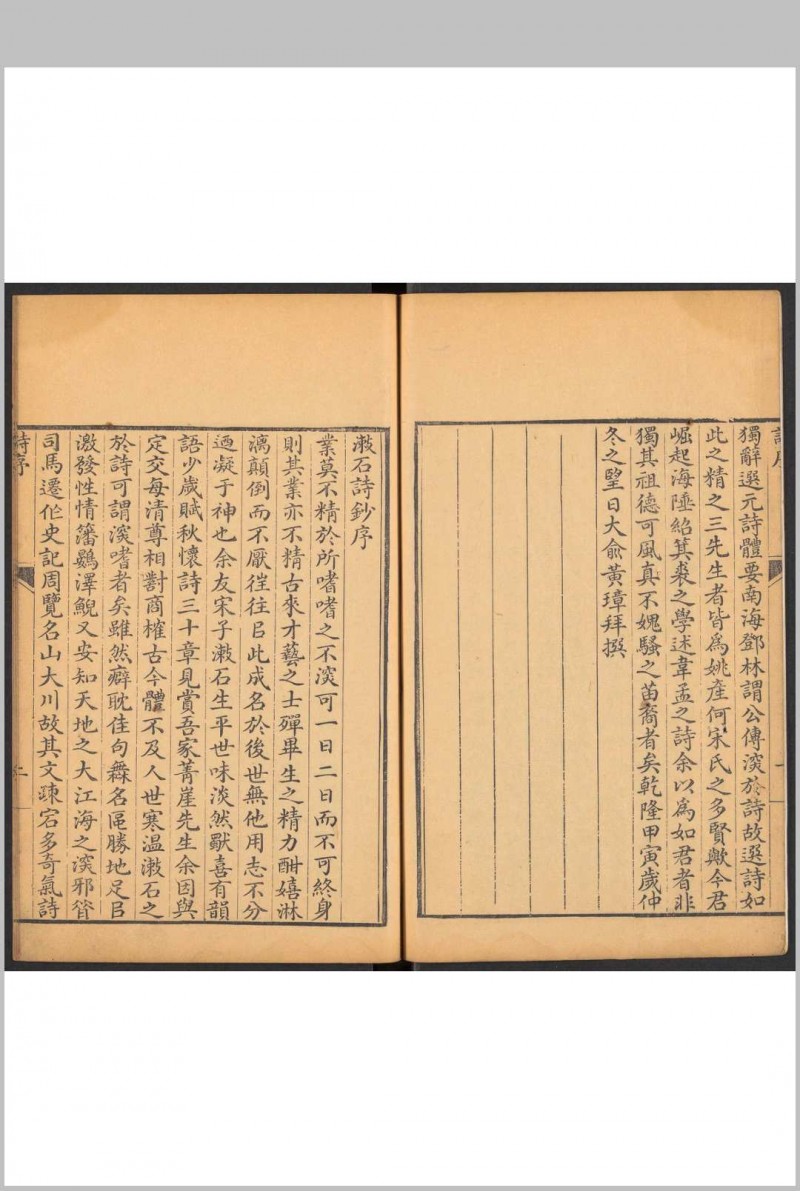 獨辭選元詩體要南海鄧林謂公傳深於詩故選詩如
此之精之三先生者皆為姚產何宋氏之多賢歟今君
崛起海陲紹箕裘之學述韋孟之詩余以為如君者非
獨其祖德可風真不媿騷之苗裔者矣乾隆甲寅歲仲
冬之望日大俞黃璋拜撰
漱石詩鈔序
業莫不精於所嗜嗜之不深可一日二日而不可終身
則其業亦不精古來才藝之士殫畢生之精力酣嬉淋
漓顛倒而不厭徃徃㠯此成名於後世無他用志不分
迺凝于神也余友宋子漱石生平世味淡然獸喜有韻
語少歲賦秋懷詩三十章見賞吾家菁崖先生余因與
定交每清尊相對商榷古今體不及人世寒溫漱石之
於詩可謂深嗜者矣雖然癖耽佳句舞名區勝地足㠯
激發性情籓鷃澤鯢又安知天地之大江海之深邪昝
司馬遷作史記周覽名山大川故其文疎宕多奇氣詩
詩序
二